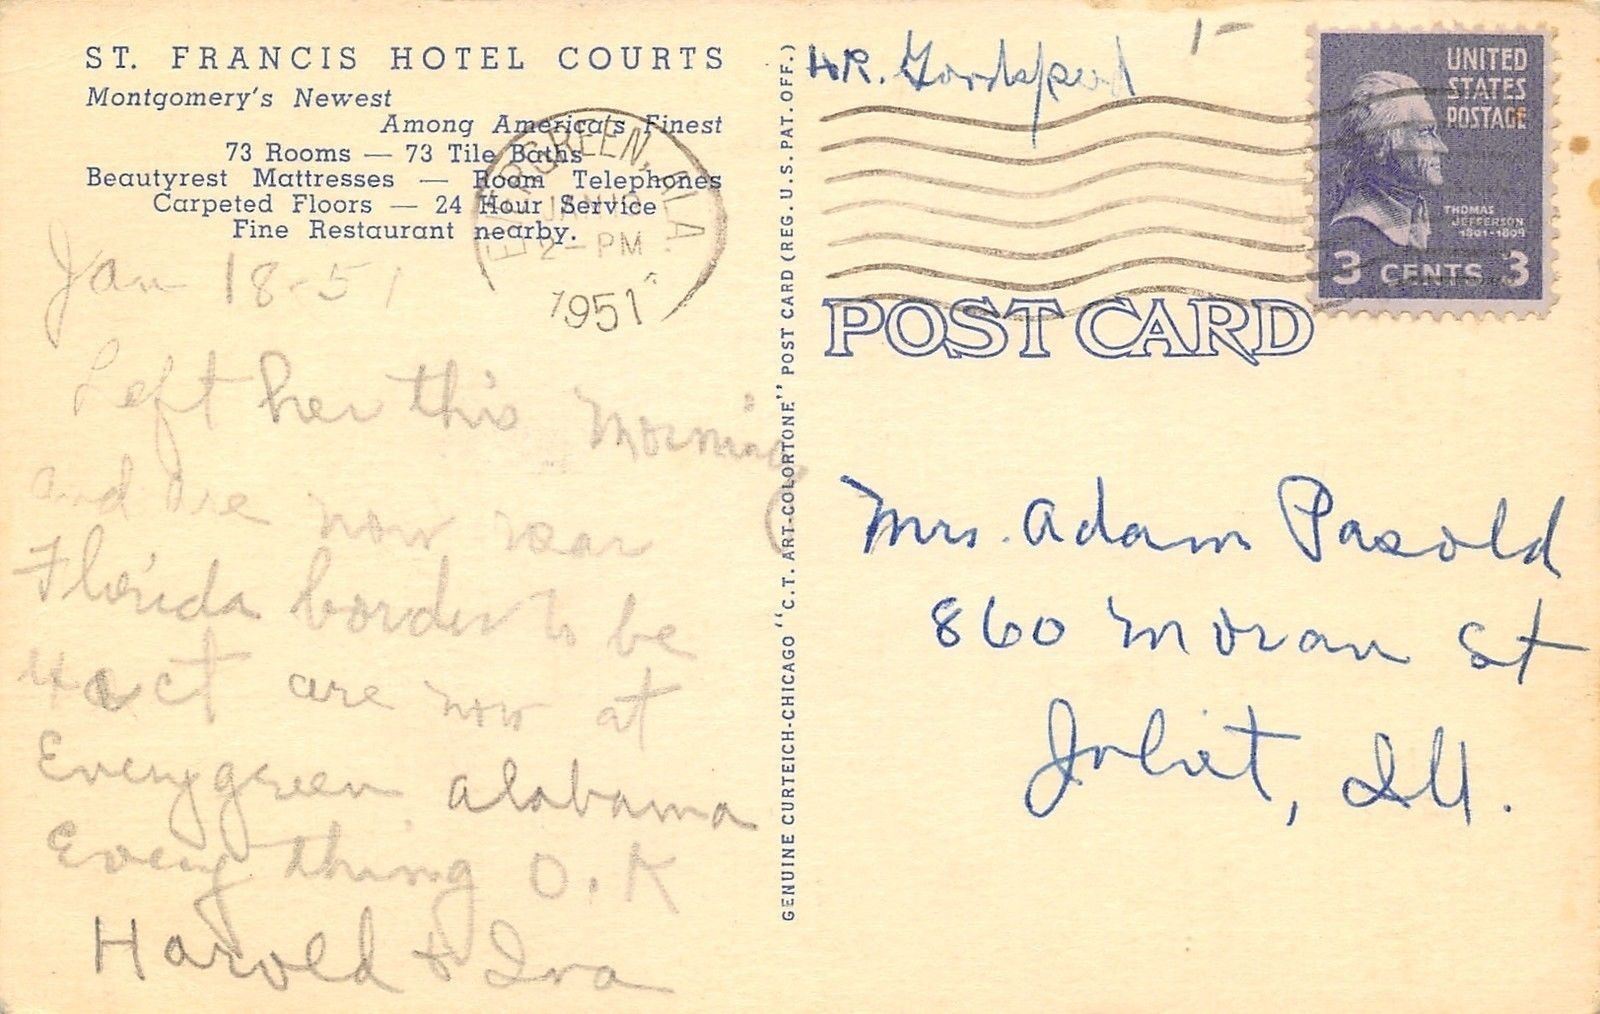 ST. FRANCIS HOTEL COURTS
Montgomery's Newest
Among America's Finest
73 Rooms — 73 Tile Baths
Beautyrest Mattresses — Room Telephones
Carpeted Floors — 24 Hour Service
Fine Restaurant nearby.
EVERGREEN, ALA.
JAN
2 – PM
1951
Jan 18-51
Left her this morning
and are now near
Florida border to be
exact are now at
Everygreen Alabama
Every thing O.K
Harold & Iva
GENUINE CURTEICH-CHICAGO "C.T. ART-COLORTONE" POST CARD (REG. U.S. PAT. OFF.)
HR.
1–
UNITED
STATES
POSTAGE
THOMAS
JEFFERSON
1801-1809
3 CENTS 3
POST CARD
Mrs. Adam Pasold
860 Moran St
Joliet, Ill.